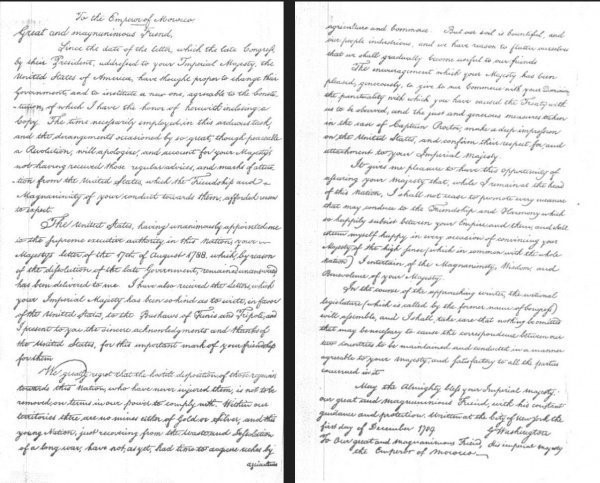 To the Emperor of Morocco
Great and magnanimous Friend,
Since the date of the letter, which the late Congress,
by their President, addressed to your Imperial Majesty, the
United States of America, have thought proper to change their
Government, and to institute a new one, agreable to the Consti
-tution, of which I have the honor of herewith inclosing a
Copy. The time necessarily employed in this arduous task,
and the derangements occasioned by so great, though peaceable
a Revolution, will apologise, and account for your Majesty's
not having received those regular advices, and marks of atten
-tion from the United States, which the Friendship and
Magnanimity of your conduct towards them, afforded reason
to expect.
The United States, having unanimously appointed me
to the supreme executive authority in this Nation, your
Majesty's letter of the 17th of August 1788, which by reason
of the dissolution of the late Government, remained unanswered
has been delivered to me. I have also received the Letters, which
your Imperial Majesty has been so kind as to write, in favor
of the United States, to the Bashaws of Tunis and Tripoli, and
I present to you the sincere acknowledgments and thanks of
the United States, for this important mark of your friendship
for them.
We greatly regret that the hostile disposition of those regencies
towards this Nation, who have never injured them, is not to be
removed, on terms in our power to comply with. Within our
territories there are no mines either of Gold or Silver, and this
young Nation, just recovering from the waste and Desolation
of a long war, have not, as yet, had time to acquire riches by
agriculture
agriculture and Commerce. But our soil is bountiful, and
our people industrious, and we have reason to flatter ourselves
that we shall gradually become useful to our friends.
The encouragement which your Majesty has been
pleased, generously, to give to our Commerce with your Dominions,
the punctuality with which you have caused the Treaty with
us to be observed, and the just and generous measures taken
in the case of Captain Proctor, make a deep impression
on the United States, and confirm their respect for, and
attachment to your Imperial Majesty.
It gives me pleasure to have this opportunity of
assuring your Majesty that, while I remain at the head
of this Nation, I shall not cease to promote every measure
that may conduce to the Friendship and Harmony, which
so happily subsist between your Empire and them, and shall
esteem myself happy in every occasion of convincing your
Majesty of the high sense (which in common with the whole
Nation) I entertain of the Magnanimity, Wisdom and
Benevolence of your Majesty.
In the course of the approaching winter, the national
legislature (which is called by the former name of Congress)
will assemble, and I shall take care that nothing be omitted
that may be necessary to cause the correspondence between our
two countries to be maintained and conducted in a manner
agreeable to your majesty, and satisfactory to all the parties
concerned in it.
May the Almighty bless your Imperial majesty,
our great and magnanimous Friend, with his constant
guidance and protection. Written at the City of New York the
first day of December 1789.
G Washington
To Our great and magnanimous Friend, his imperial Majesty
the Emperor of Morocco.